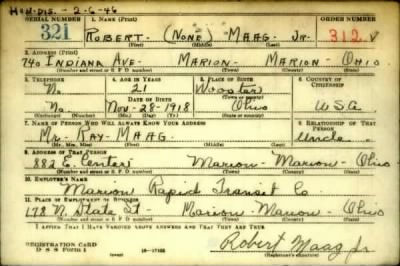 HON-DIS. - 2-6-46
SERIAL NUMBER 1. NAME (Print) ORDER NUMBER
321 ROBERT. (NONE) MAAG JR. 312 V
(First) (Middle) (Last)
2. ADDRESS (Print)
740 INDIANA AVE- MARION- MARION- OHIO
(Number and street or R. F. D. number) (Town) (County) (State)
3. TELEPHONE 4. AGE IN YEARS 5. PLACE OF BIRTH 6. COUNTRY OF CITIZENSHIP
No. 21 Wooster
DATE OF BIRTH (Town or county)
No. Nov-28-1918 Ohio U.S.A
(Mo.) (Day) (Yr.) (State or country)
7. NAME OF PERSON WHO WILL ALWAYS KNOW YOUR ADDRESS 8. RELATIONSHIP OF THAT PERSON
Mr. RAY- MAAG Uncle
(Mr., Mrs., Miss) (First) (Middle) (Last)
9. ADDRESS OF THAT PERSON
882 E. Center Marion- Marion- Ohio
(Number and street or R. F. D. number) (Town) (County) (State)
10. EMPLOYER'S NAME
Marion Rapid Transit Co
11. PLACE OF EMPLOYMENT OR BUSINESS
178 N. State St- Marion- Marion- Ohio
(Number and street or R. F. D. number) (Town) (County) (State)
I AFFIRM THAT I HAVE VERIFIED ABOVE ANSWERS AND THAT THEY ARE TRUE
REGISTRATION CARD Robert Maag Jr
D S S Form 1 (Registrant's signature)